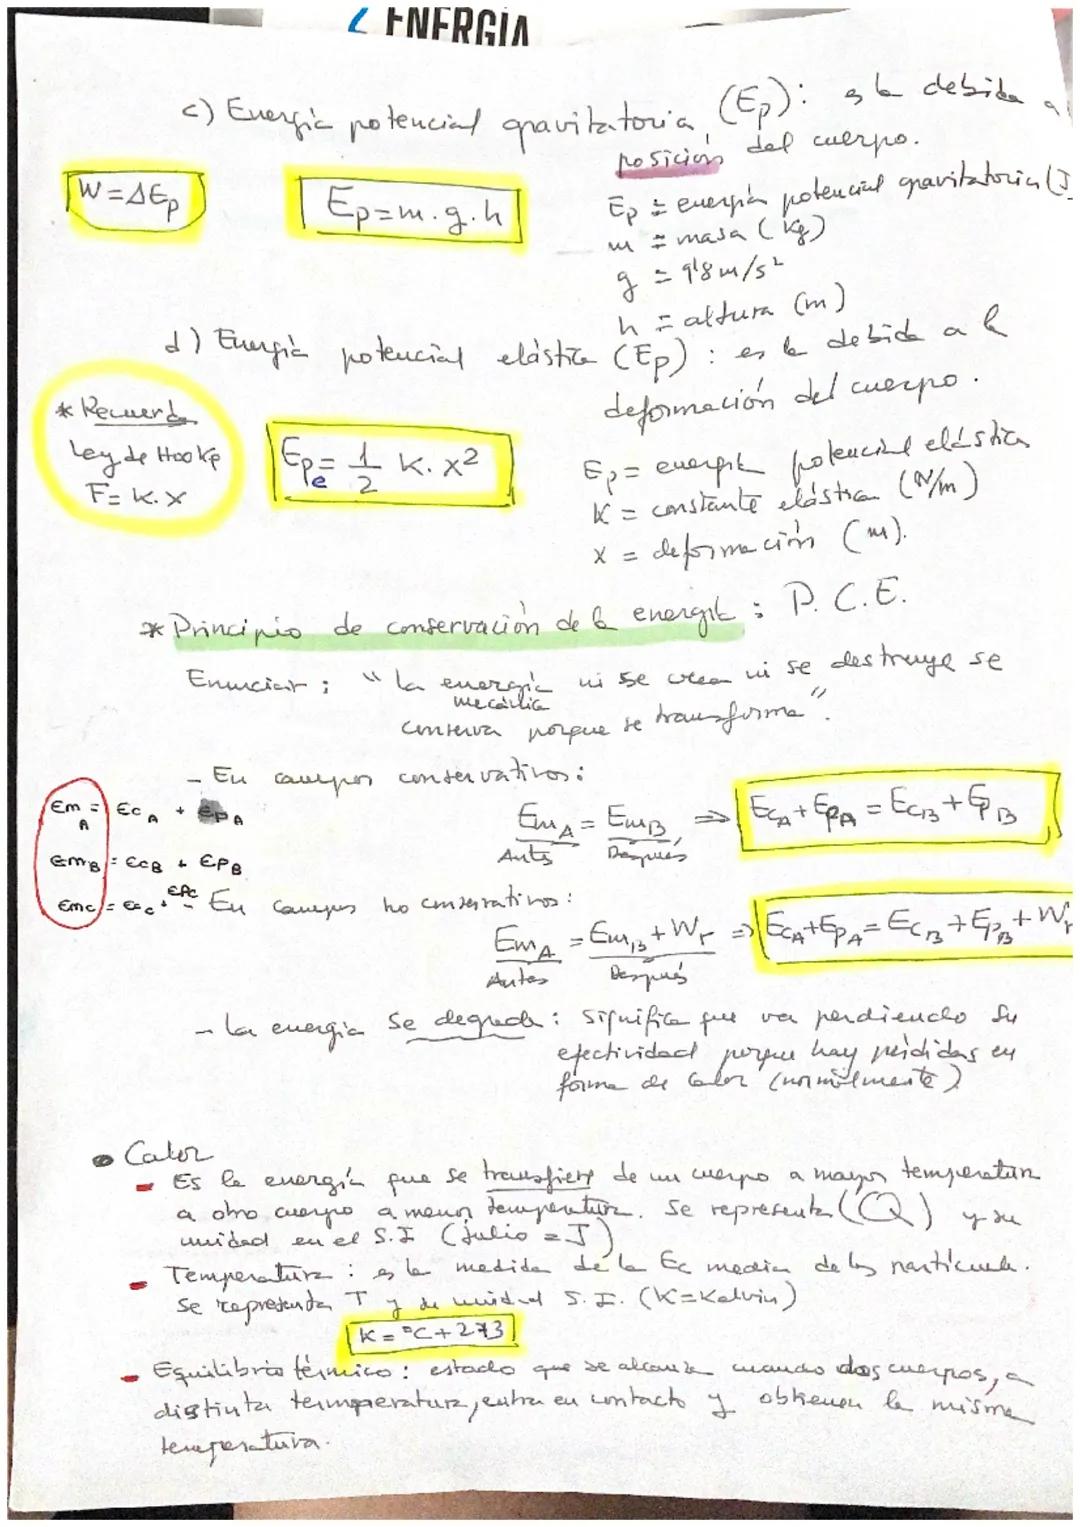 ENERGÍA
c) Energía potencial gravitatoria, (Ep): es la debida a
posición del cuerpo.
W = ΔEp
Ep = m · g · h
Ep = energía potencial gravitatoria (J
m = masa (Kg)
g = 9'8 m/s²
h = altura (m)
d) Energía potencial elástica (Ep) : es la debida a la
deformación del cuerpo.
* Recuerda
Ley de Hooke
F = K. x
Epe = 1/2 K. x²
Ep = energía potencial elástica
K = constante elástica (N/m)
x = deformación (m).
* Principio de conservación de la energía : P. C. E.
Enunciar : "la energía ni se crea ni se destruye se
mecánica
conserva porque se transforma".
- En campos conservativos:
EmA = EcA + EpA
EmB = EcB + EpB
Emc = Ecc + Epc
EmA = EmB ⇒ EcA + EpA = EcB + EpB
Antes Después
- En campos no conservativos:
EmA = EmB + Wr ⇒ EcA + EpA = EcB + EpB + Wr
Antes Después
- La energía se degrada : significa que va perdiendo su
efectividad porque hay pérdidas en
forma de calor (normalmente)
• Calor
- Es la energía que se transfiere de un cuerpo a mayor temperatura
a otro cuerpo a menor temperatura. Se representa (Q) y su
unidad en el S.I (Julio = J)
- Temperatura : es la medida de la Ec media de las partículas.
Se representa T y su unidad S.I. (K=Kelvin)
K = °C + 273
- Equilibrio térmico : estado que se alcanza cuando dos cuerpos, a
distinta termperatura, entra en contacto y obtienen la misma
temperatura.